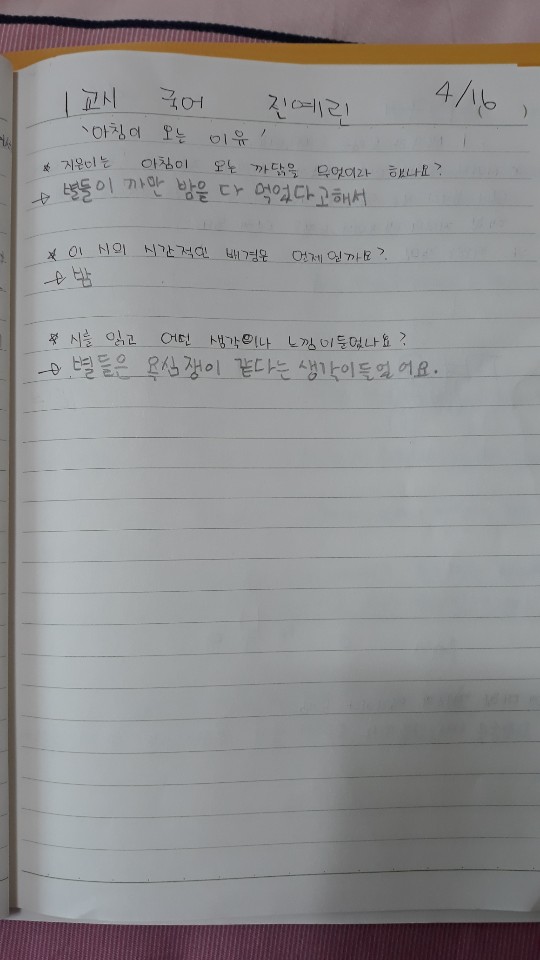 1교시 국어 진예린 4/16
'아침이 오는 이유'
* 지은이는 아침이 오는 까닭을 무엇이라 했나요?
→ 별들이 까만 밤을 다 먹었다고해서
* 이 시의 시간적인 배경은 언제일까요?
→ 밤
* 시를 읽고 어떤 생각이나 느낌이들었나요?
→ 별들은 욕심쟁이 같다는 생각이들었어요.